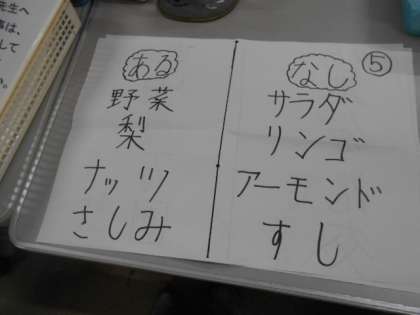 先生へ
ある
野菜
梨
ナッツ
さしみ
なし
⑤
サラダ
リンゴ
アーモンド
すし